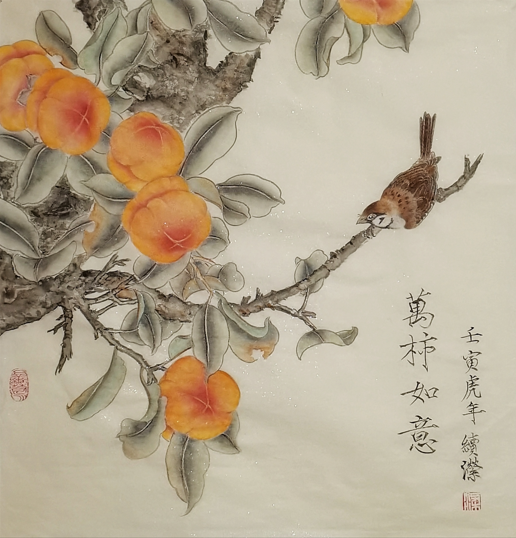 萬柿如意
壬寅虎年 續潔